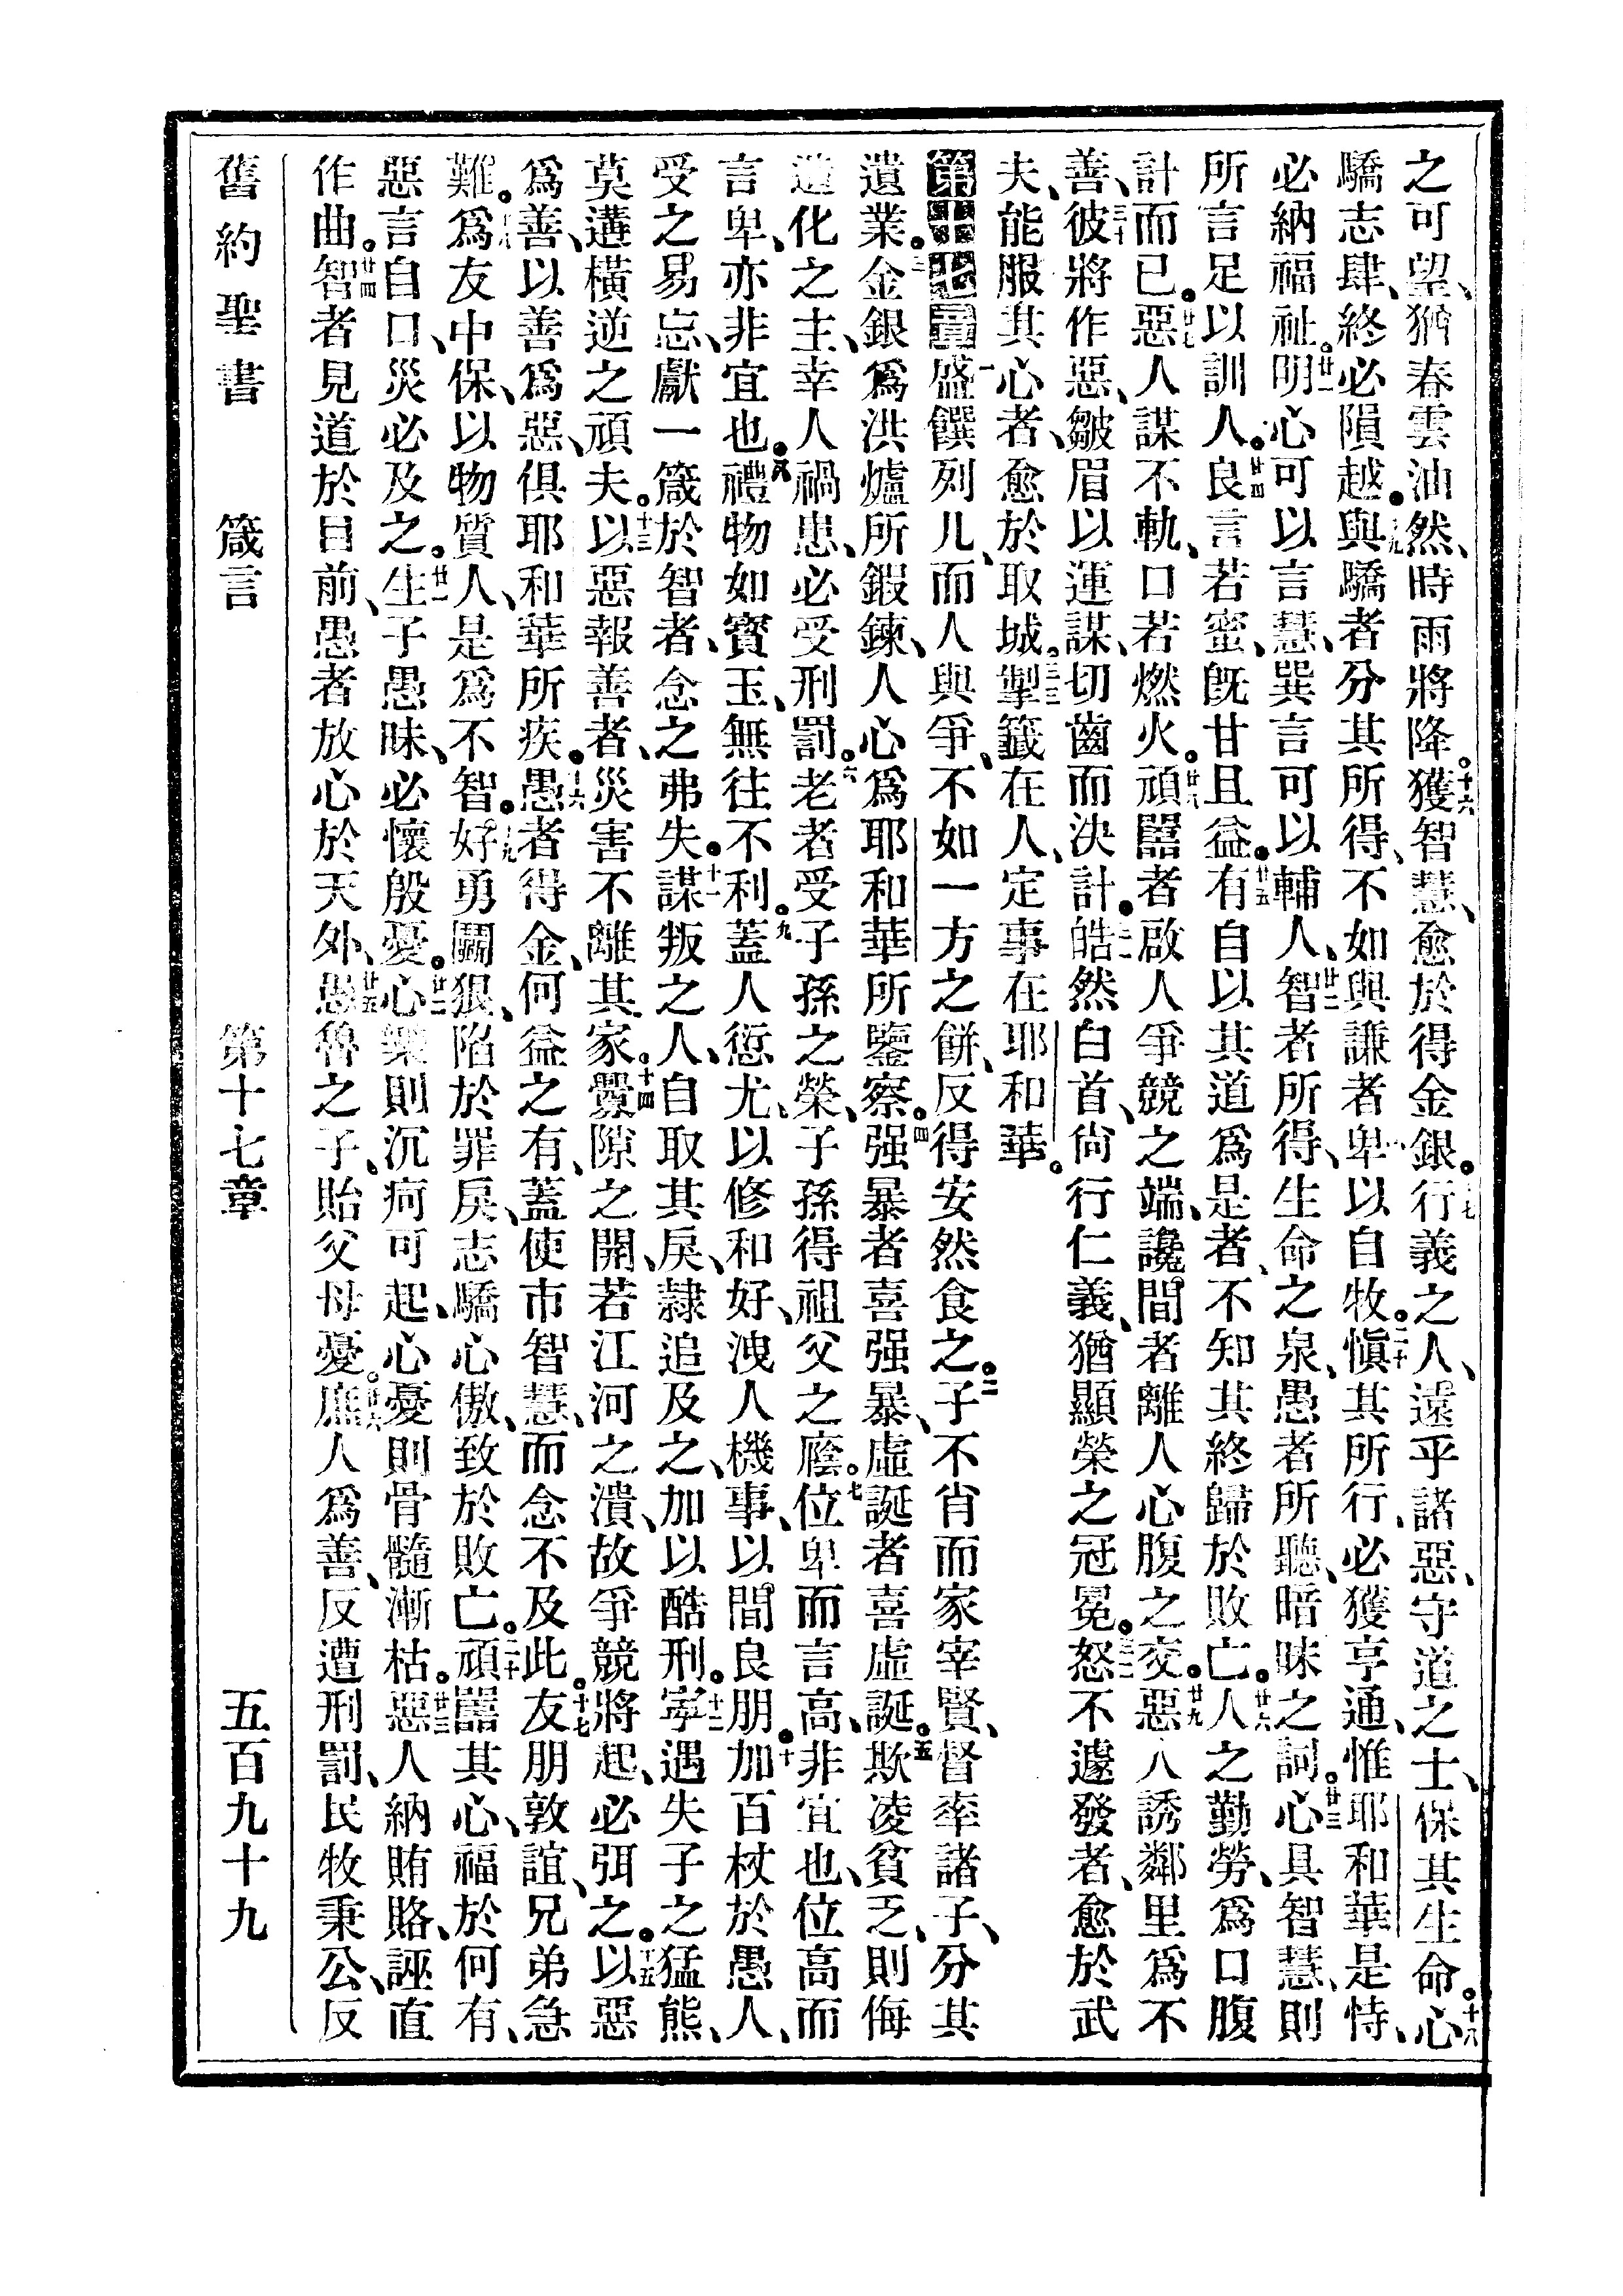 之可望、猶春雲油然、時雨將降。十六獲智慧、愈於得金銀。十七行義之人、遠乎諸惡、守道之士、保其生命。十八心
驕志肆、終必隕越。十九與驕者分其所得、不如與謙者卑以自牧。二十愼其所行、必獲亨通、惟耶和華是恃、
必納福祉。廿一明心可以言慧、巽言可以輔人、廿二智者所得、生命之泉、愚者所聽、暗昧之詞。廿三心具智慧、則
所言足以訓人。廿四良言若蜜、旣甘且益。廿五有自以其道爲是者、不知其終歸於敗亡。廿六人之勤勞、爲口腹
計而已。廿七惡人謀不軌、口若燃火。廿八頑嚚者啟人爭競之端、讒間者離人心腹之交。廿九惡人誘鄰里爲不
善、三十彼將作惡、皺眉以運謀、切齒而決計。三一皓然白首、尙行仁義、猶顯榮之冠冕。三二怒不遽發者、愈於武
夫、能服其心者、愈於取城。三三掣籤在人、定事在耶和華。
第十七章一盛饌列几、而人與爭、不如一方之餅、反得安然食之。二子不肖而家宰賢、督率諸子、分其
遺業。三金銀爲洪爐所鍜鍊、人心爲耶和華所鑒察。四强暴者喜强暴、虛誕者喜虛誕。五欺凌貧乏、則侮
造化之主、幸人禍患、必受刑罰。六老者受子孫之榮、子孫得祖父之廕。七位卑而言高、非宜也、位高而
言卑、亦非宜也。八禮物如寳玉、無往不利。九蓋人愆尤、以修和好、洩人機事、以間良朋。十加百杖於愚人、
受之易忘、獻一箴於智者、念之弗失。十一謀叛之人、自取其戾、隷追及之、加以酷刑。十二寧遇失子之猛熊、
莫遘橫逆之頑夫。十三以惡報善者、災害不離其家。十四釁隙之開、若江河之潰、故爭競將起、必弭之。十五以惡
爲善、以善爲惡、俱耶和華所疾。十六愚者得金、何益之有、蓋使市智慧、而念不及此。十七友朋敦誼、兄弟急
難。十八爲友中保、以物質人、是爲不智。十九好勇鬬狠、陷於罪戾、志驕心傲、致於敗亡。二十頑嚚其心、福於何有、
惡言自口、災必及之。廿一生子愚昧、必懷殷憂。廿二心樂則沉疴可起、心憂則骨髓漸枯。廿三惡人納賄賂、誣直
作曲。廿四智者見道於目前、愚者放心於天外、廿五愚魯之子、貽父母憂。廿六庶人爲善、反遭刑罰、民牧秉公、反
舊約聖書 箴言 第十七章 五百九十九